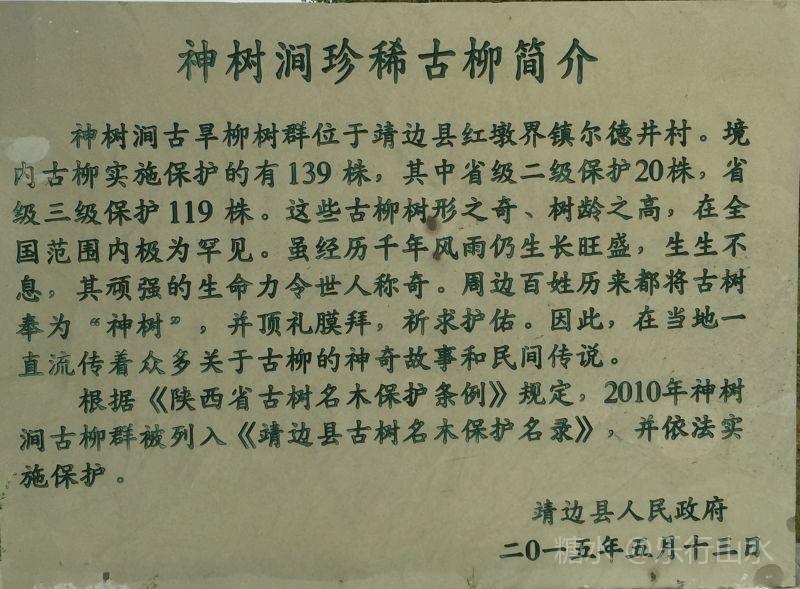 神树涧珍稀古柳简介
神树涧古旱柳树群位于靖边县红墩界镇尔德井村。境
内古柳实施保护的有139株，其中省级二级保护20株，省
级三级保护119株。这些古柳树形之奇、树龄之高，在全
国范围内极为罕见。虽经历千年风雨仍生长旺盛，生生不
息，其顽强的生命力令世人称奇。周边百姓历来都将古树
奉为“神树”，并顶礼膜拜，祈求护佑。因此，在当地一
直流传着众多关于古柳的神奇故事和民间传说。
根据《陕西省古树名木保护条例》规定，2010年神树
涧古柳群被列入《靖边县古树名木保护名录》，并依法实
施保护。
靖边县人民政府
二〇一五年五月十三日
糖水 @乐行山水